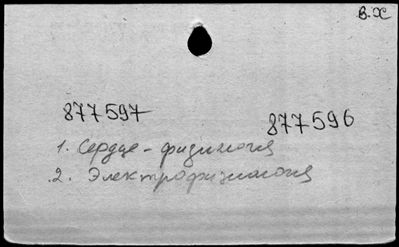 В.Х
877597
877596
1. Сердце - физиология
2. Электрофизиология